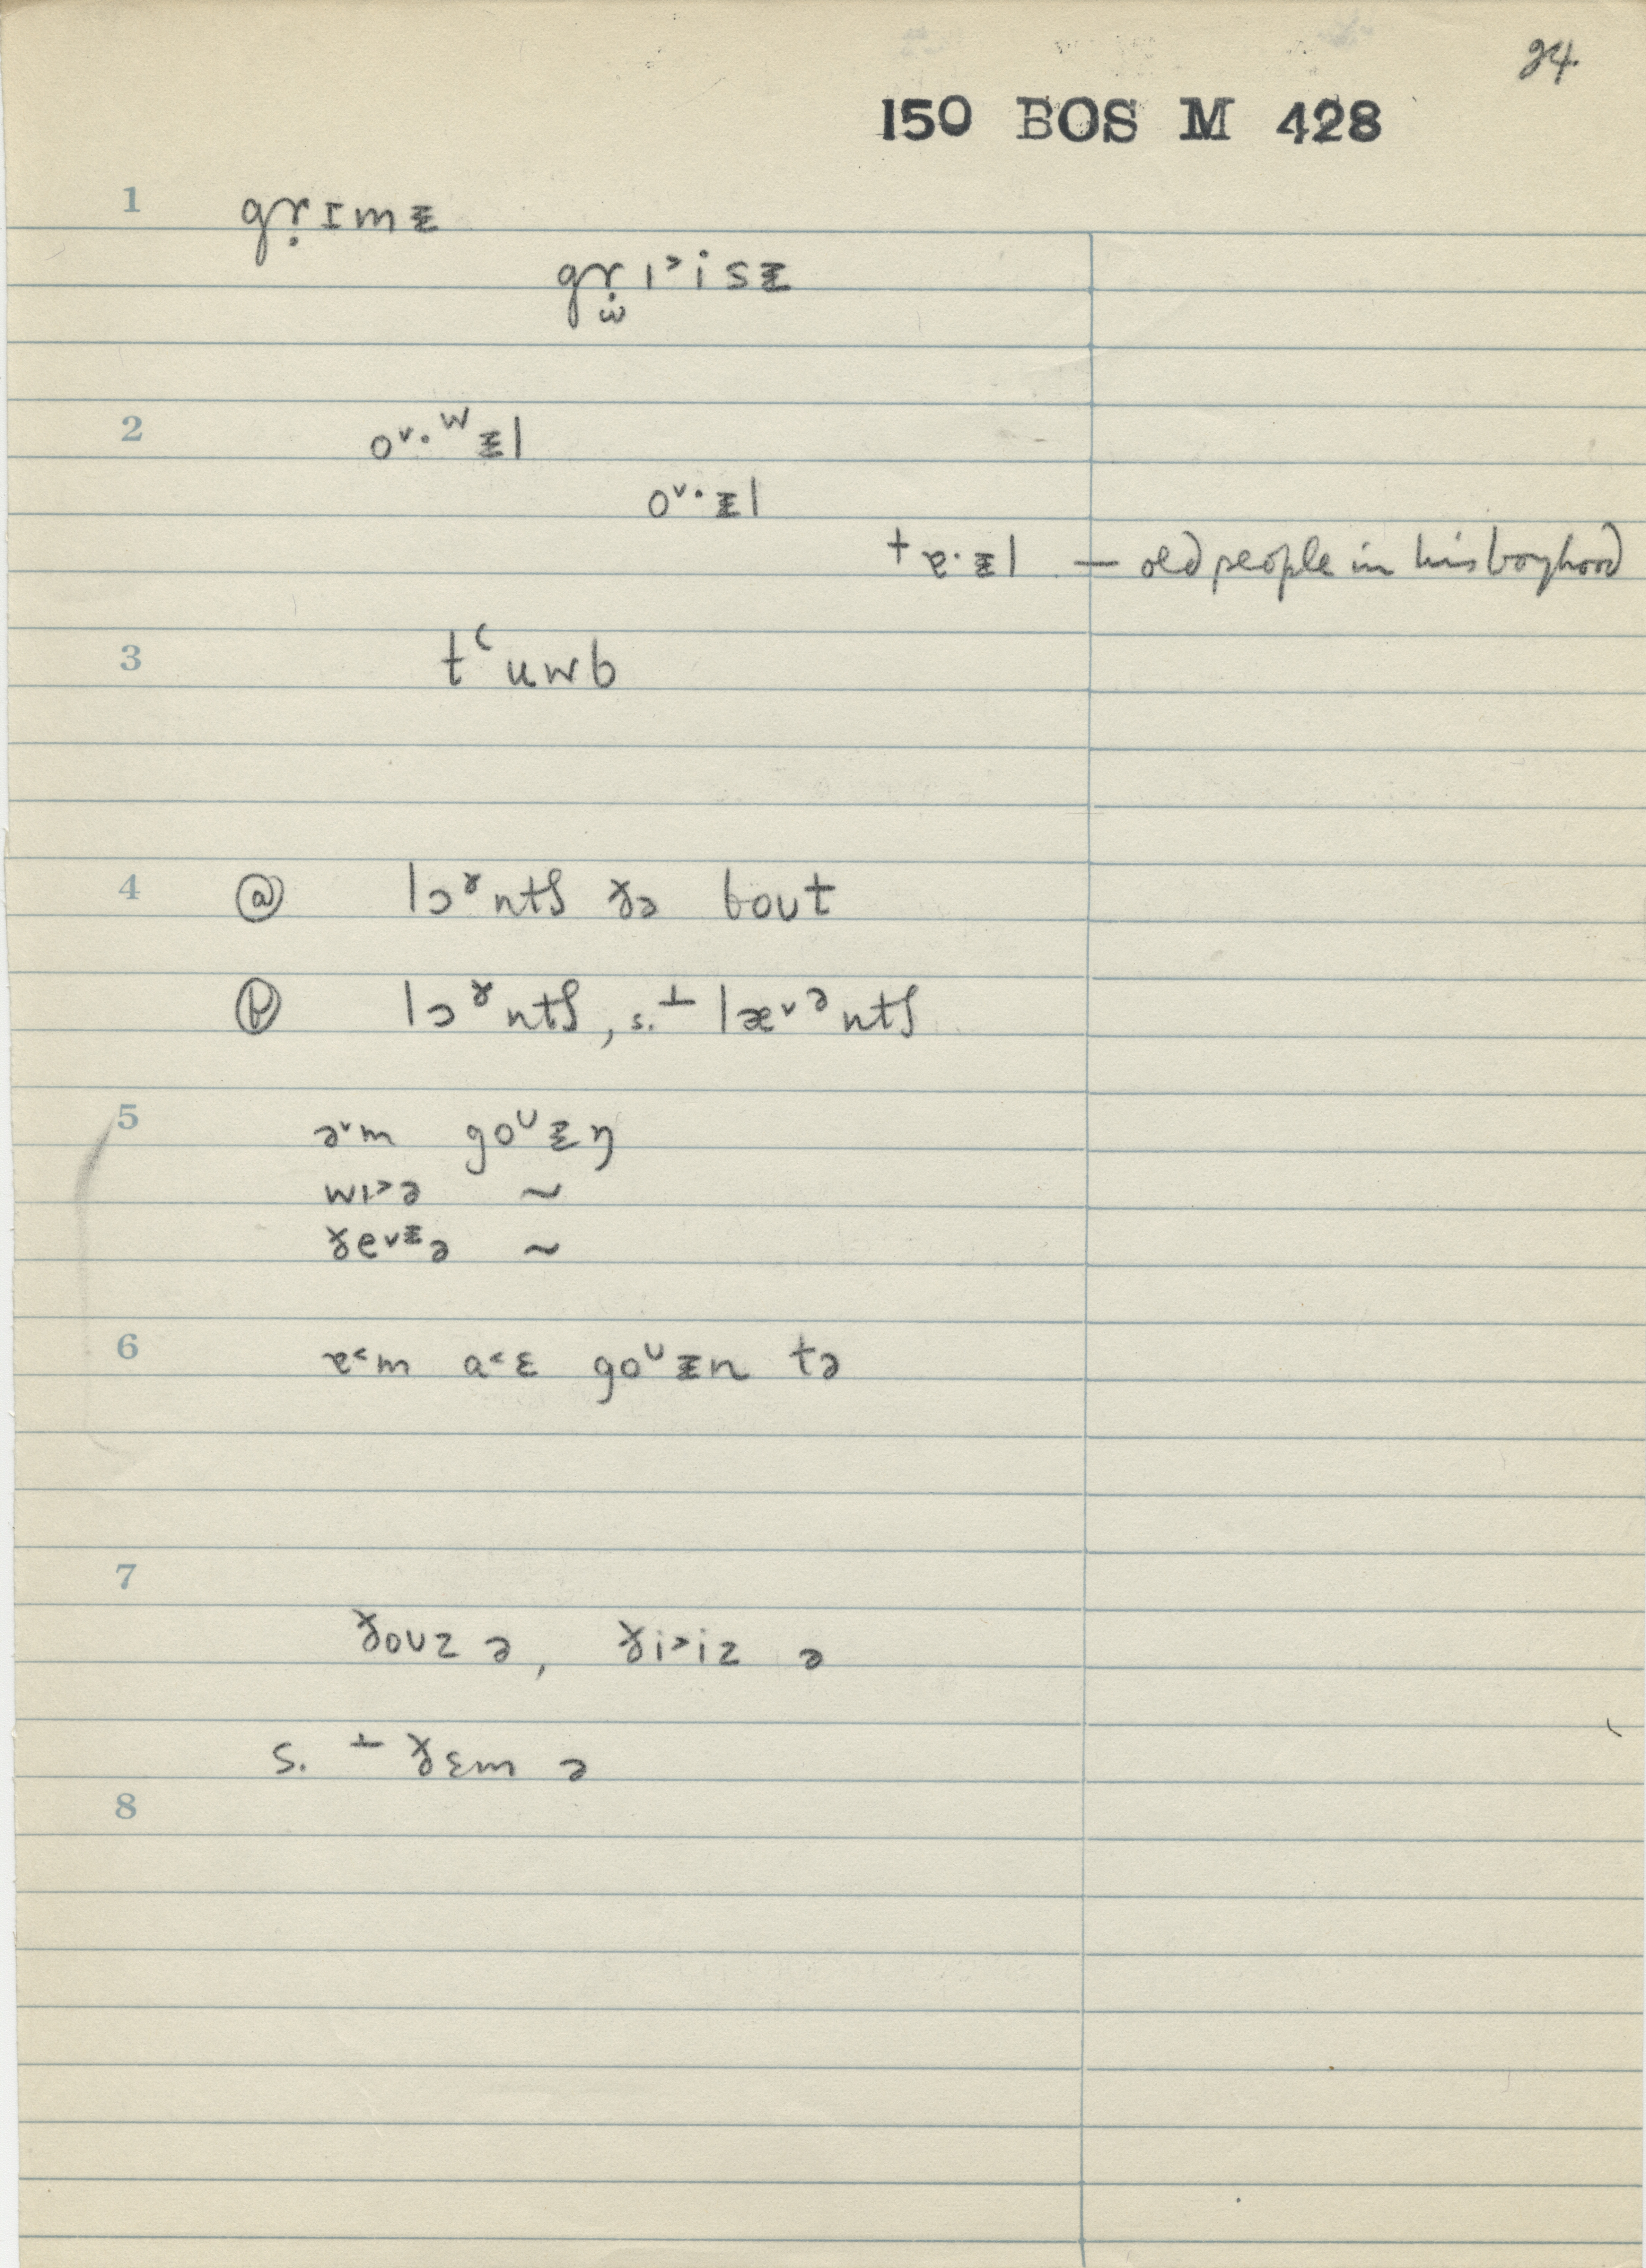 24
150 BOS M 428
1 gɤ̣ɪmᵻ
gɤ̣ɪ˃isᵻ
ω
2 o˅·ʷᵻl
o˅·ᵻl
† ɐ·ᵻl — old people in his boyhood
3 t‘uwb
4 ⓐ lɔˠntʃ ɤə bout
ⓑ lɔˠntʃ, s. ⊥ læ˅ᵊntʃ
5 ə˅m goᵁᵻŋ
wɪ˃ə ~
ɤe˅ᵻə ~
6 ɐ˂m a˂ɛ goᵁᵻn tə
7
ɤouz ə, ɤi˃iz ə
s. ⊥ ɤɛm ə
8